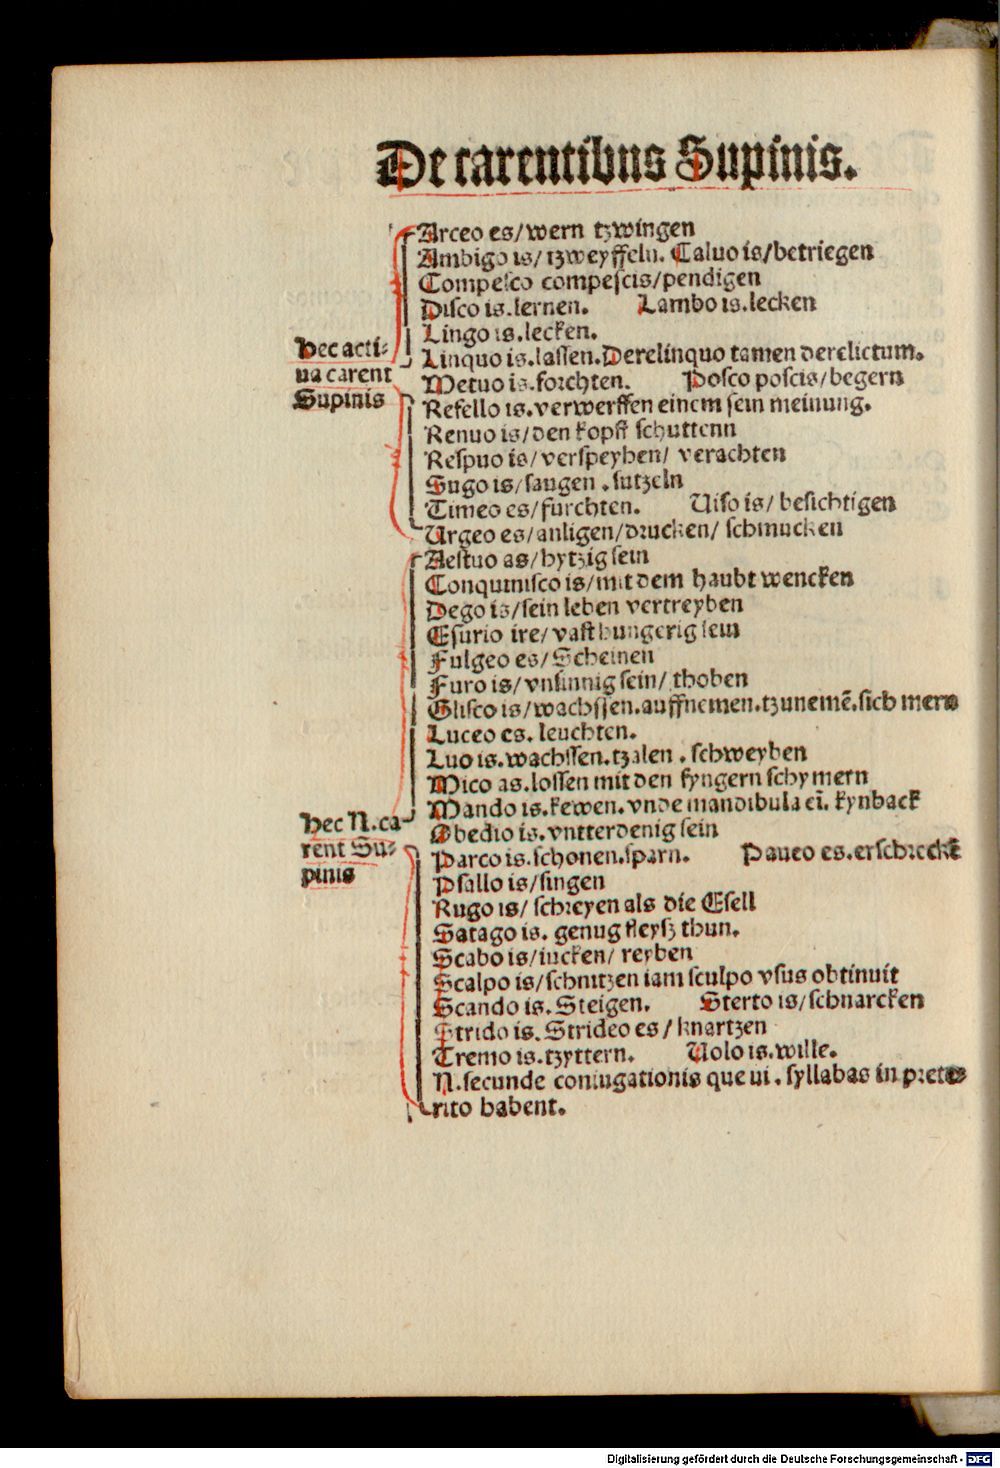 De carentibus Supinis.
Arceo es/wern tzwingen
Ambigo is/tzweyffeln. Caluo is/betriegen
Compesco compescis/pendigen
Disco is.lernen. Lambo is.lecken
Lingo is.lecken.
Hec acti-
ua carent
Supinis
Linquo is.lassen.Derelinquo tamen derelictum.
Metuo is.forchten. Posco poscis/begern
Refello is.verwerffen einem sein meinung.
Renuo is/den kopff schuttenn
Respuo is/verspeyhen/ verachten
Sugo is/saugen .sutzeln
Timeo es/furchten. Uiso is/ besichtigen
Urgeo es/anligen/drucken/ schmucken
Aestuo as/hytzig sein
Conquinisco is/mit dem haubt wencken
Dego is/sein leben vertreyben
Esurio ire/vast hungerig sein
Fulgeo es/Scheinen
Furo is/vnsinnig sein/ thoben
Glisco is/wachssen.auffnemen.tzunemē.sich mern
Luceo es. leuchten.
Luo is.wachssen.tzalen . schweyben
Mico as.lossen mit den fyngern schymern
Mando is.kewen.vnde mandibula ei̅. kynback
Hec N.ca-
rent Su-
pinis
Obedio is.vntterdenig sein
Parco is.schonen.sparn. Paueo es.erschreckē
Psallo is/singen
Rugo is/ schreyen als die Esell
Satago is. genug fleysz thun.
Scabo is/iucken/ reyben
Scalpo is/schnitzen iam sculpo vsus obtinuit
Scando is.Steigen. Sterto is/schnarcken
Strido is.Strideo es/knartzen
Tremo is.tzyttern. Uolo is.wille.
N.secunde coniugationis que ui.syllabas in prete
rito habent.
Digitalisierung gefördert durch die Deutsche Forschungsgemeinschaft - DFG